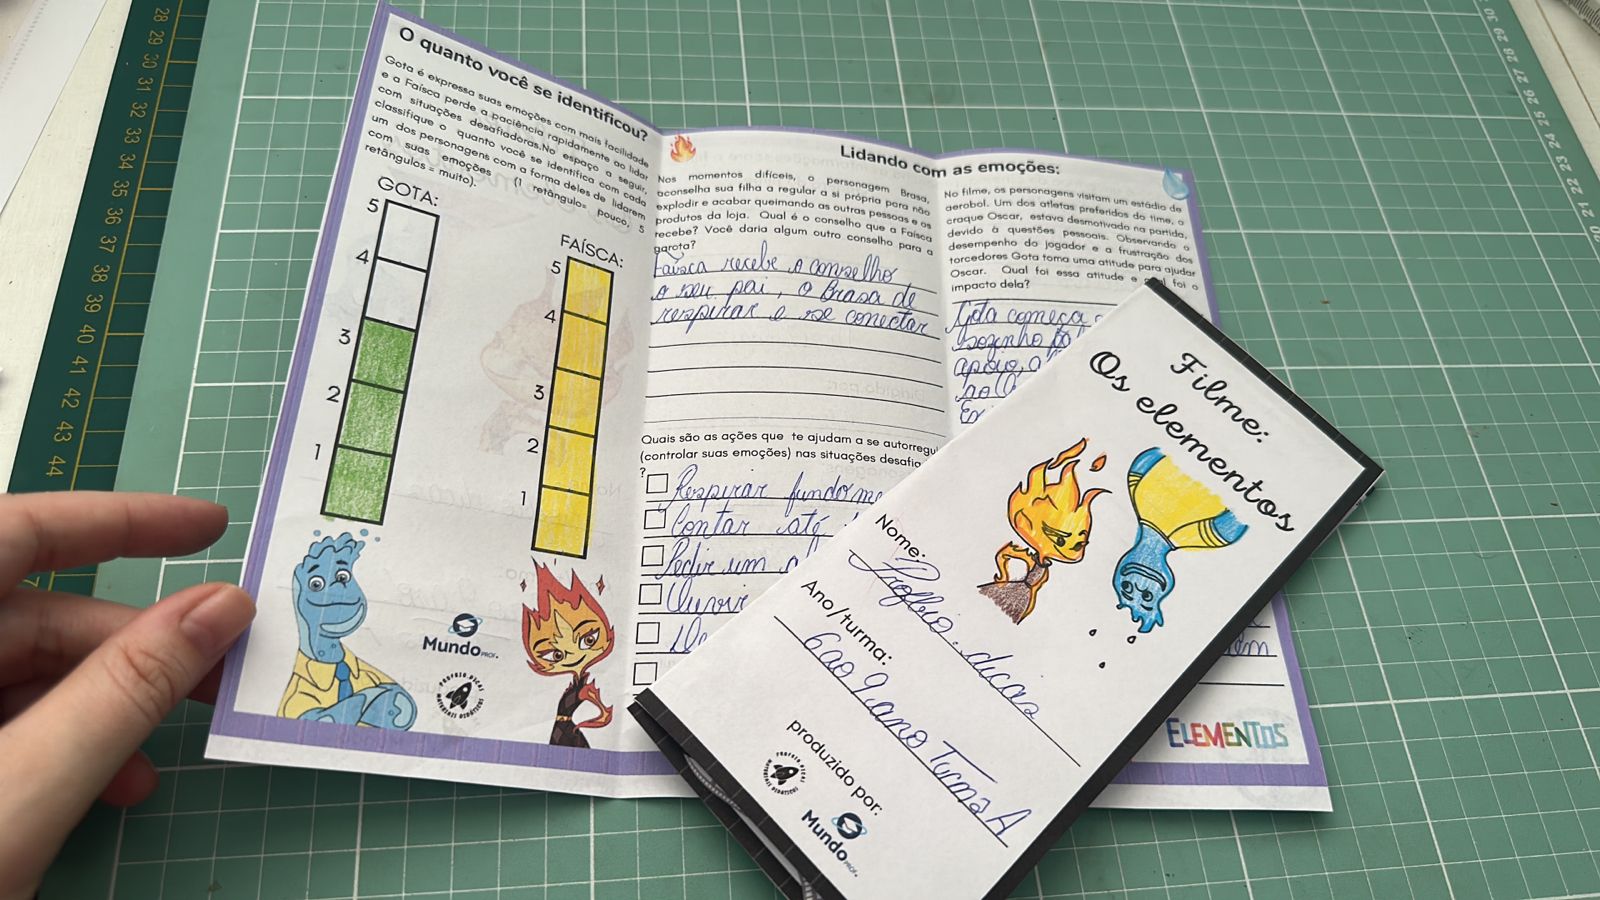 O quanto você se identificou?
Gota é expressa suas emoções com mais facilidade
e a Faísca perde a paciência rapidamente ao lidar
com situações desafiadoras.No espaço a seguir,
classifique o quanto você se identifica com cada
um dos personagens com a forma deles de lidarem
com suas emoções (1 retângulo= pouco, 5
retângulos = muito).
GOTA:
5
4
3
2
1
FAÍSCA:
5
4
3
2
1
Mundo PROF.
Lidando com as emoções:
Nos momentos difíceis, o personagem Brasa,
aconselha sua filha a regular a si própria para não
explodir e acabar queimando as outras pessoas e os
produtos da loja. Qual é o conselho que a Faísca
recebe? Você daria algum outro conselho para a
garota?
Faísca recebe o conselho
o seu pai, o Brasa de
respirar e se conectar
Quais são as ações que te ajudam a se autorregu
(controlar suas emoções) nas situações desafia
?
Respirar
Contar até
Pedir um
No filme, os personagens visitam um estádio de
aerobol. Um dos atletas preferidos do time, o
craque Oscar, estava desmotivado na partida,
devido à questões pessoais. Observando o
desempenho do jogador e a frustração dos
torcedores Gota toma uma atitude para ajudar
Oscar. Qual foi essa atitude e qual foi o
impacto dela?
Gota começa
sozinho
apoio, a
ELEMENTOS
Filme:
Os elementos
Nome:
Profezio: dicas
Ano/turma:
6 ao 9 ano Turma A
produzido por:
PROFEZIO DICAS
MATERIAIS DIDÁTICOS
Mundo PROF.